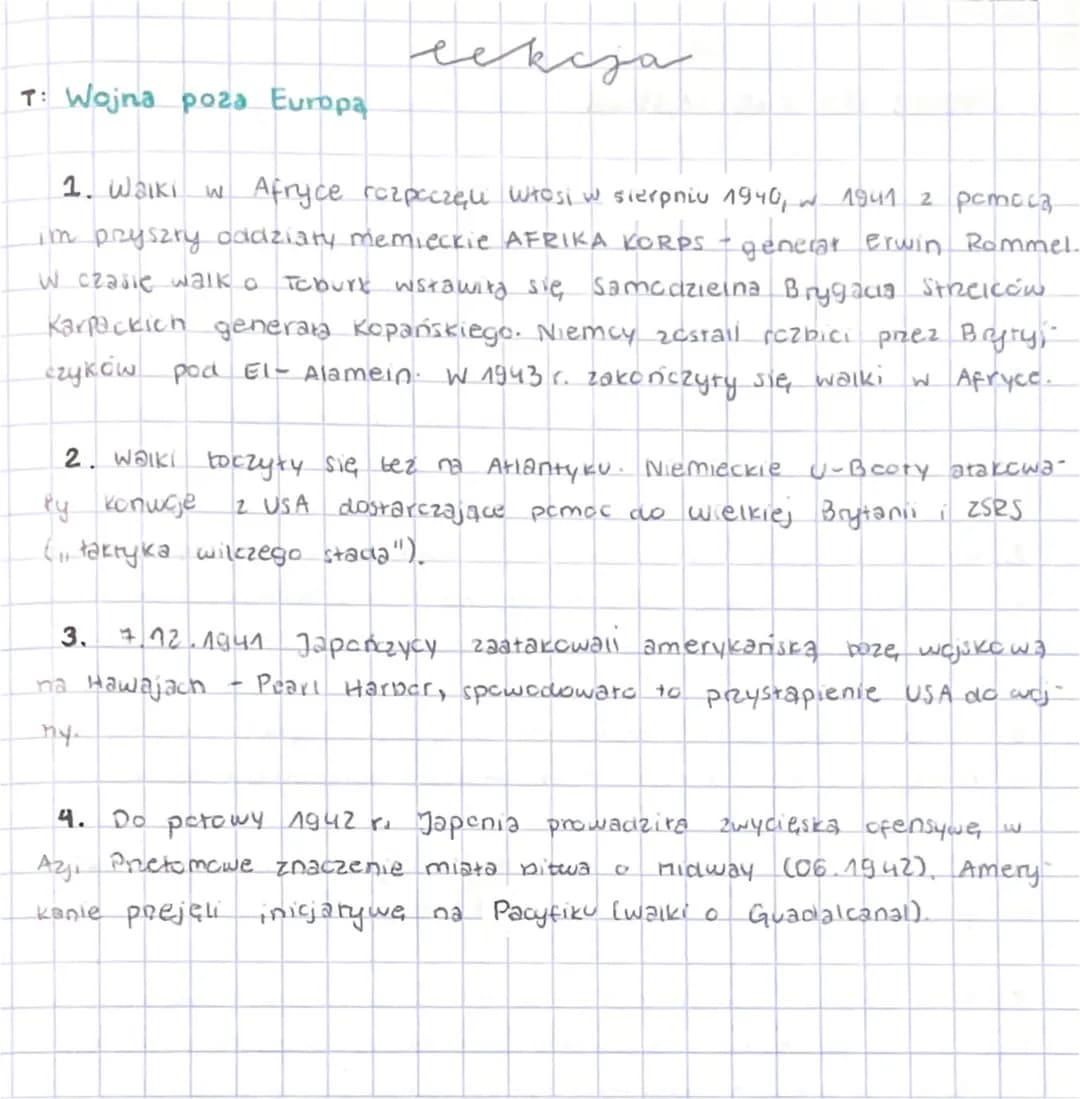 lekcja
T: Wojna poza Europą
1. Walki w Afryce rozpoczęli Włosi w sierpniu 1940, w 1941 z pomocą
im przyszły oddziały niemieckie AFRIKA KORPS - generał Erwin Rommel.
W czasie walk o Toburk wsławiła się Samodzielna Brygada Strzelców
Karpackich generała Kopańskiego. Niemcy zostali rozbici przez Brytyj-
czyków pod El-Alamein. W 1943 r. zakończyły się walki w Afryce.
2. Walki toczyły się też na Atlantyku. Niemieckie U-Booty atakowa-
ły konwoje z USA dostarczające pomoc do Wielkiej Brytanii i ZSRS
(„taktyka wilczego stada").
3. 7.12.1941 Japończycy zaatakowali amerykańską bazę wojskową
na Hawajach - Pearl Harbor, spowodowało to przystąpienie USA do woj-
ny.
4. Do połowy 1942 r. Japonia prowadziła zwycięską ofensywę w
Azji. Przełomowe znaczenie miała bitwa o Midway (06.1942). Amery-
kanie przejęli inicjatywę na Pacyfiku (walki o Guadalcanal).